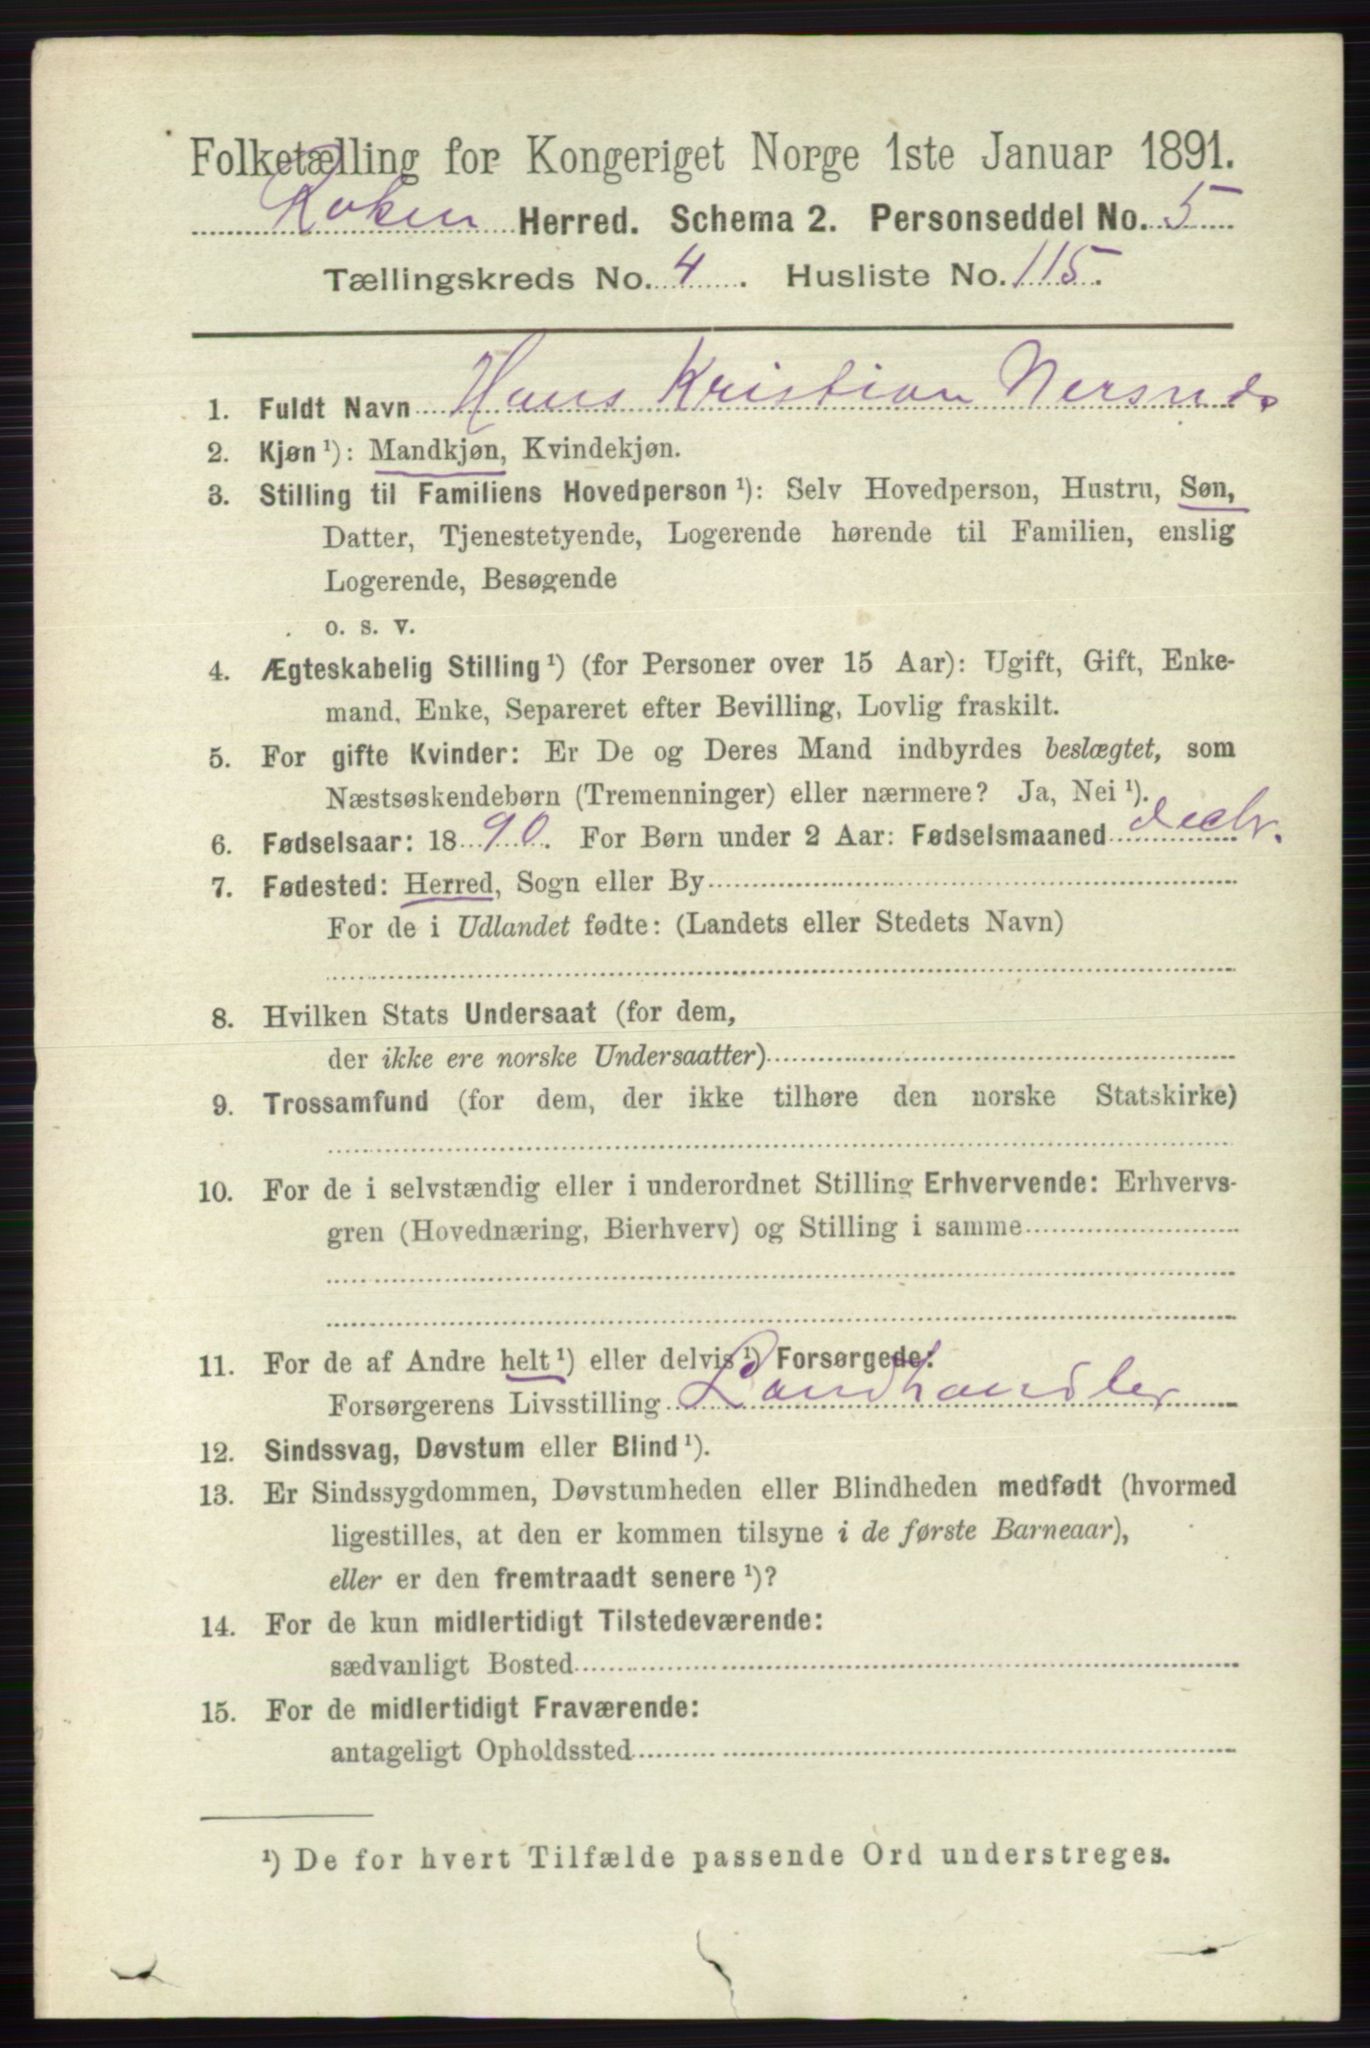 Folketælling for Kongeriget Norge 1ste Januar 1891.
Røken Herred. Schema 2. Personseddel No. 5
Tællingskreds No. 4. Husliste No. 115.
1. Fuldt Navn Hans Kristian Nersnes
2. Kjøn ¹): Mandkjøn, Kvindekjøn.
3. Stilling til Familiens Hovedperson ¹): Selv Hovedperson, Hustru, Søn,
Datter, Tjenestetyende, Logerende hørende til Familien, enslig
Logerende, Besøgende
o. s. v.
4. Ægteskabelig Stilling ¹) (for Personer over 15 Aar): Ugift, Gift, Enke-
mand, Enke, Separeret efter Bevilling, Lovlig fraskilt.
5. For gifte Kvinder: Er De og Deres Mand indbyrdes beslægtet, som
Næstsøskendebørn (Tremenninger) eller nærmere? Ja, Nei ¹).
6. Fødselsaar: 1890. For Børn under 2 Aar: Fødselsmaaned decbr.
7. Fødested: Herred, Sogn eller By
For de i Udlandet fødte: (Landets eller Stedets Navn)
8. Hvilken Stats Undersaat (for dem,
der ikke ere norske Undersaatter)
9. Trossamfund (for dem, der ikke tilhøre den norske Statskirke)
10. For de i selvstændig eller i underordnet Stilling Erhvervende: Erhvervs-
gren (Hovednæring, Bierhverv) og Stilling i samme
11. For de af Andre helt ¹) eller delvis ¹) Forsørgede:
Forsørgerens Livsstilling Landhandler
12. Sindssvag, Døvstum eller Blind ¹).
13. Er Sindssygdommen, Døvstumheden eller Blindheden medfødt (hvormed
ligestilles, at den er kommen tilsyne i de første Barneaar),
eller er den fremtraadt senere ¹)?
14. For de kun midlertidigt Tilstedeværende:
sædvanligt Bosted
15. For de midlertidigt Fraværende:
antageligt Opholdssted
¹) De for hvert Tilfælde passende Ord understreges.